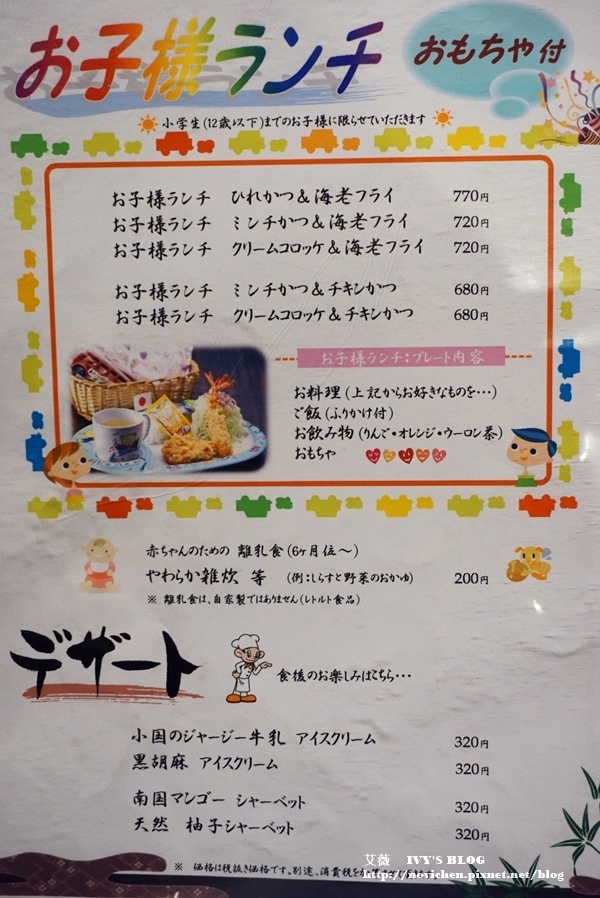 お子様ランチ おもちゃ付
小学生(12歳以下)までのお子様に限らせていただきます
お子様ランチ ひれかつ&海老フライ 770円
お子様ランチ ミンチかつ&海老フライ 720円
お子様ランチ クリームコロッケ&海老フライ 720円
お子様ランチ ミンチかつ&チキンかつ 680円
お子様ランチ クリームコロッケ&チキンかつ 680円
お子様ランチ:プレート内容
お料理(上記からお好きなものを…)
ご飯(ふりかけ付)
お飲み物(りんご・オレンジ・ウーロン茶)
おもちゃ
赤ちゃんのための 離乳食(6ヶ月位～)
やわらか雑炊 等 (例:しらすと野菜のおかゆ) 200円
※ 離乳食は、自家製ではありません(レトルト食品)
デザート
食後のお楽しみはこちら…
小国のジャージー牛乳 アイスクリーム 320円
黒胡麻 アイスクリーム 320円
南国マンゴー シャーベット 320円
天然 柚子シャーベット 320円
※ 価格は税抜き価格です。別途、消費税を
艾薇 IVY'S BLOG
http://novichen.pixnet.net/blog